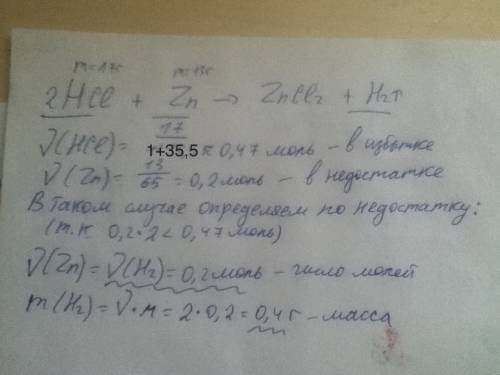 m=17г m=13г
2HCl + Zn → ZnCl₂ + H₂↑
ν(HCl) = 17/1+35,5 = 0,47 моль – в избытке
ν(Zn) = 13/65 = 0,2 моль – в недостатке
В таком случае определяем по недостатку:
(т.к 0,2·2 < 0,47 моль)
ν(Zn) = ν(H₂) = 0,2 моль – число молей
m(H₂) = ν·M = 2·0,2 = 0,4 г – масса